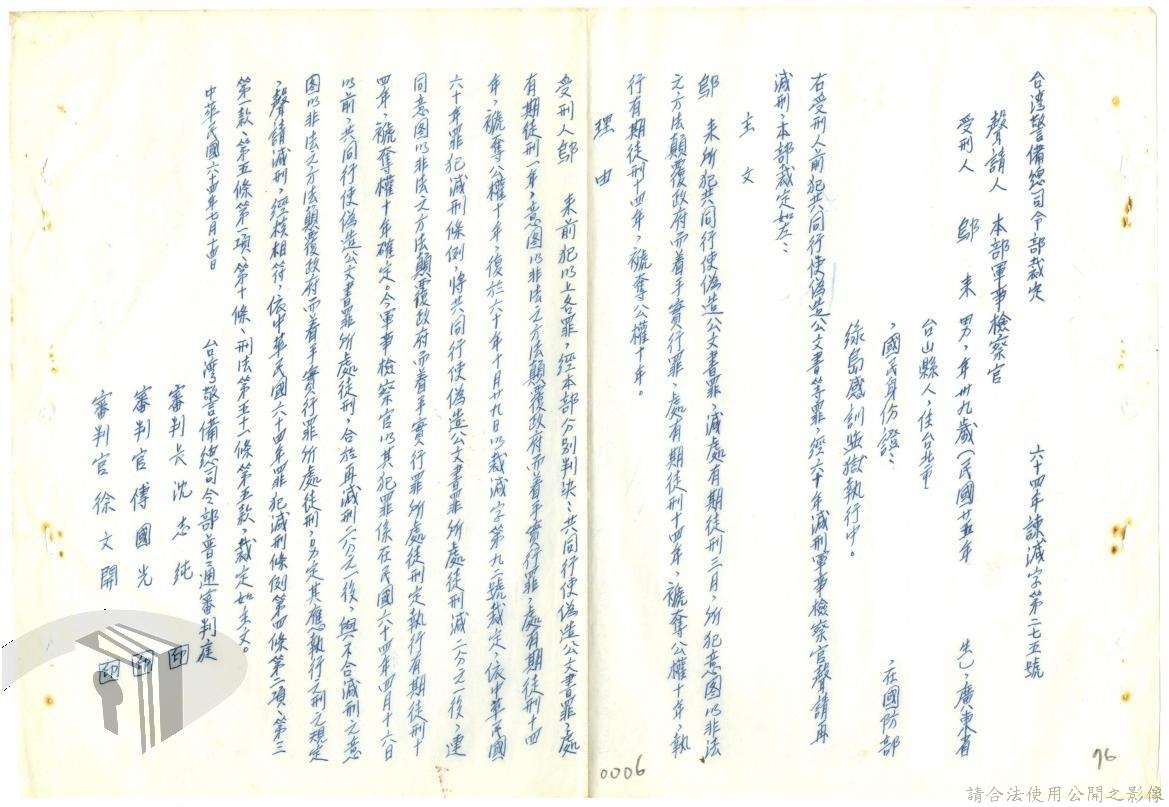 台湾警備總司令部裁定
六十四年諫減字第二七五號
聲請人 本部軍事檢察官
受刑人 鄔 来 男,年卅九歲(民國廿五年 生),廣東省
台山縣人,住台北市
,國民身份證: ,在國防部
綠島感訓监獄執行中。
右受刑人前犯共同行使偽造公文書等罪,經六十年減刑軍事檢察官聲請再
減刑,本部裁定如左:
主文
鄔 来所犯共同行使偽造公文書罪,減處有期徒刑三月,所犯意图以非法
之方法顛覆政府而着手实行罪,處有期徒刑十四年,褫奪公權十年,執
行有期徒刑十四年,褫奪公權十年。
理由
受刑人鄔 来前犯以上各罪,經本部分別判決:共同行使偽造公文書罪,處
有期徒刑一年,意图以非法之方法顛覆政府而着手实行罪,處有期徒刑十四
年,褫奪公權十年,復於六十年十月廿九日以裁減字第九二號裁定,依中華民國
六十年罪犯減刑條例,將共同行使偽造公文書罪所處徒刑減二分之一後,連
同意图以非法之方法顛覆政府而着手实行罪所處徒刑定執行有期徒刑十
四年,褫奪權十年確定。今軍事檢察官以其犯罪係在民國六十四年四月十六日
以前,共同行使偽造公文書罪所處徒刑,合於再減刑二分之一後,與不合減刑之意
图以非法之方法顛覆政府而着手实行罪所處徒刑,另定其應執行之刑之規定
,聲請減刑,經核相符,依中華民國六十四年罪犯減刑條例第四條第一項、第三
第一款、第五條第一項、第十條、刑法第五十一條第五款,裁定如主文。
中華民國六十四年七月十四日
台湾警備總司令部普通審判庭
審判長沈志純 印
審判官傅國光 印
審判官徐文開 印
0006
76
請合法使用公開之影像